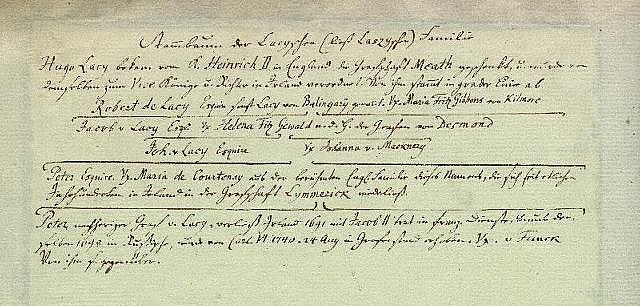 Stammbaum der Lacyschen (ließ Laczyschn) Familie
Hugo Lacy bekam von K. Heinrich II in England die Grafschaft Meath geschenkt, u. wurde von
demselben zum Vice Könige u. Richter in Irland verordnet. Von ihm stamt in grader Linie ab
Robert de Lacy Esquire Lacy von Balingary Vx. Maria Fitz Gibbons von Kilmore
Jacob v Lacy Esqu. Vx Helena Fitz Gerald a. d. H. der Grafen von Desmond
Joh. v. Lacy Esquire Vx Johanna v. Mackney
Peter Esquire. Vx. Maria de Courtenay aus der berühmten Engl. Familie dieses Namens, die sich seit etlichen
Jahrhunderten in Irland in der Grafschaft Lymmerick niederließ.
Peter nachheriger Graf v. Lacy, verließ Irland 1691 mit Jacob II trat in franz. Dienste,
in Russische, und von Carl VI 1740. 24 Aug in Grafenstand erhoben. Vx. v Funck
Von ihm s. gegenüber.